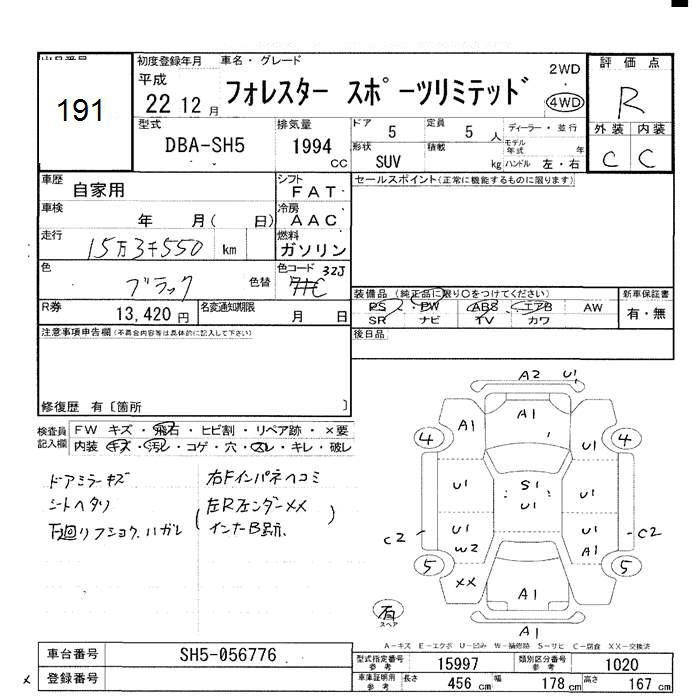 出品番号
191
初度登録年月
平成
22 12 月
車名・グレード
フォレスター スポーツリミテッド
2WD
4WD
評価点
R
外装 内装
C C
型式
DBA-SH5
排気量
1994
CC
ドア
5
定員
5 人
形状
SUV
積載
kg
ディーラー・並行
モデル年式 年
ハンドル 左・右
車歴
自家用
シフト
FAT
車検
年 月( 日)
冷房
AAC
走行
15万3千550 km
燃料
ガソリン
色
ブラック
色替
色コード 32J
R券
13,420 円
名変通知期限
月 日
セールスポイント(正常に機能するものに限ります)
装備品 (純正品に限り○をつけてください)
PS ・ PW ABS ・ エアB AW
SR ナビ TV カワ
新車保証書
有・無
後日品
注意事項申告欄(不具合内容等は具体的に記入して下さい)
修復歴 有〔箇所 〕
検査員記入欄
FW キズ・飛石・ヒビ割・リペア跡・×要
内装 キズ・汚レ・コゲ・穴・スレ・キレ・破レ
ドアミラーキズ
シートヘタリ
下廻リフショク、ハガレ
右Fインパネヘコミ
左Rフェンダー××
A2 U1
A1
A1
4 4
U1
U1 S1 U1
U1
U1 U1
C2 W2 A1 C2
5 5
×× A1
有
スペア
A1
A-キズ E-エクボ U-凹み W-補修跡 S-サビ C-腐食 XX-交換済
車台番号
SH5-056776
登録番号
型式指定番号 参考
15997
類別区分番号 参考
1020
車庫証明用 参考
長さ 456 cm 幅 178 cm 高さ 167 cm